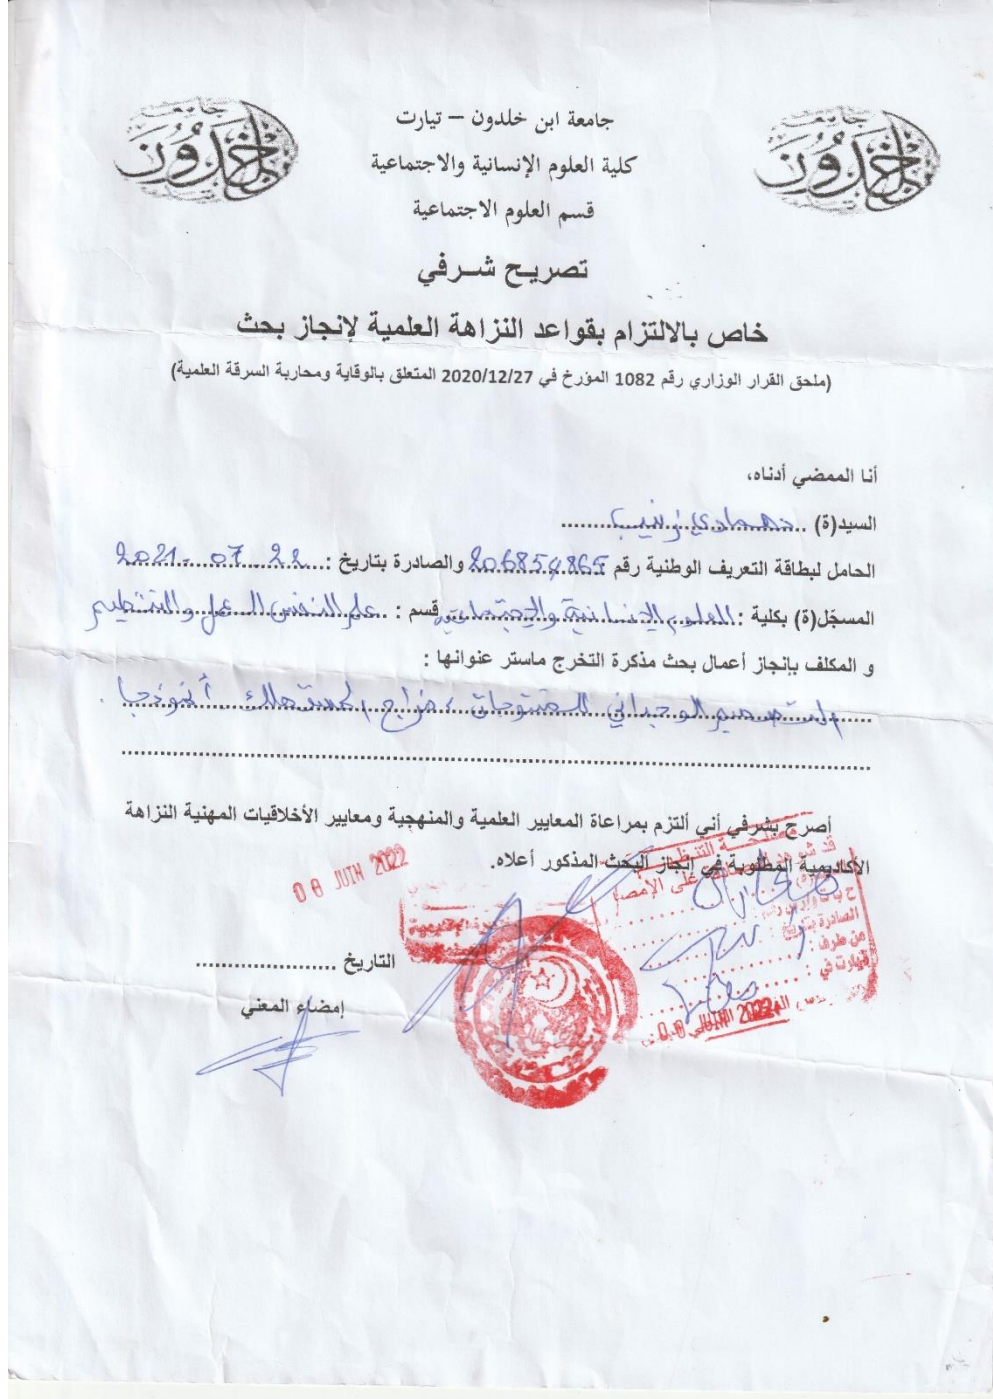 جامعة ابن خلدون – تيارت
كلية العلوم الإنسانية والاجتماعية
قسم العلوم الاجتماعية
تصريح شرفي
خاص بالالتزام بقواعد النزاهة العلمية لإنجاز بحث
(ملحق القرار الوزاري رقم 1082 المؤرخ في 2020/12/27 المتعلق بالوقاية ومحاربة السرقة العلمية)
أنا الممضي أدناه،
السيد(ة) حمادي زينب
الحامل لبطاقة التعريف الوطنية رقم 206854865 والصادرة بتاريخ : 22 07 - 2021
المسجّل(ة) بكلية : العلوم الإنسانية والاجتماعية قسم : علم النفس العمل والتنظيم
و المكلف بإنجاز أعمال بحث مذكرة التخرج ماستر عنوانها :
التصميم الوجداني للمنتوجات ، مزاج المستهلك أنموذجا .
أصرح بشرفي أني ألتزم بمراعاة المعايير العلمية والمنهجية ومعايير الأخلاقيات المهنية النزاهة
الأكاديمية المطلوبة في إنجاز البحث المذكور أعلاه.
08 JUIN 2022
التاريخ
إمضاء المعني
مصلحة التنظيم
على الإمضاء
الصادرة بتاريخ :
من طرف :
تيارت في :
08 JUIN 2022